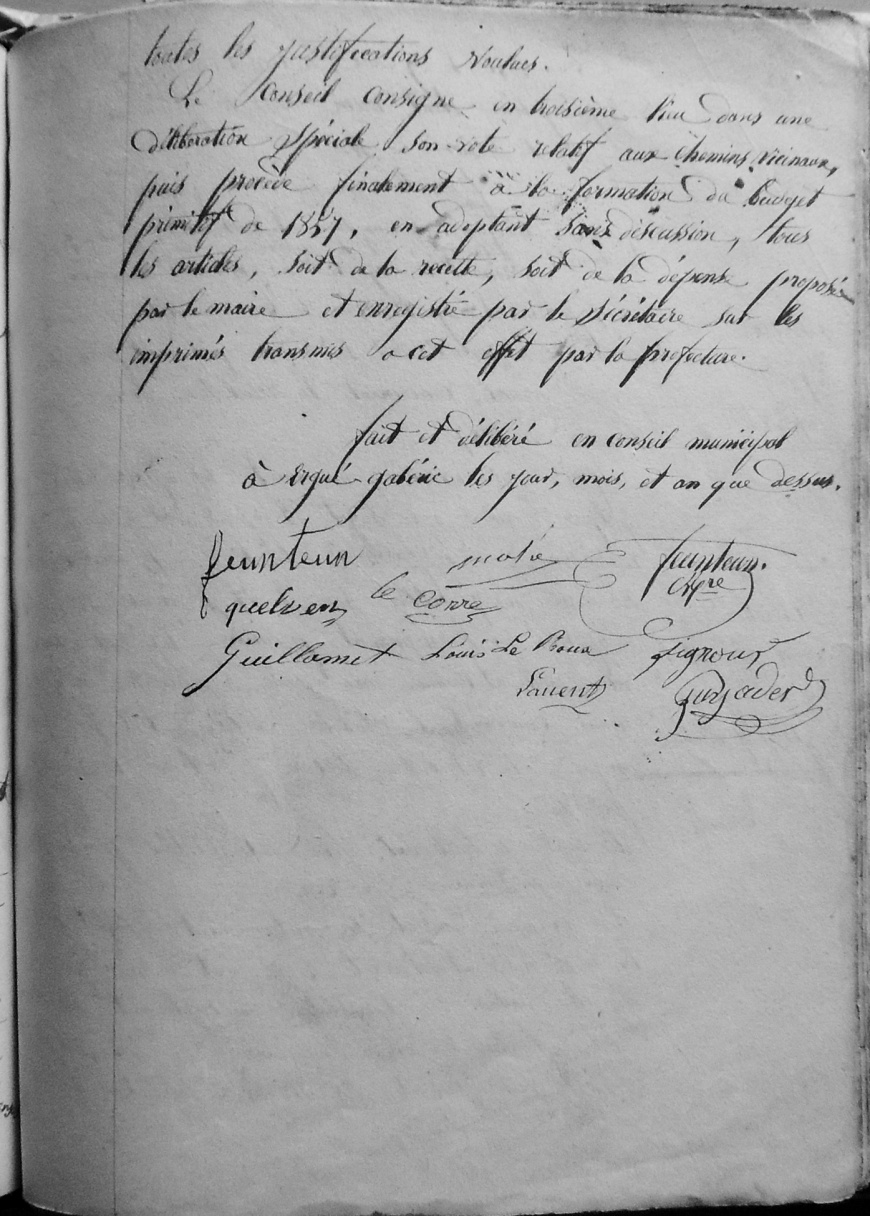 toutes les justifications voulues.
Le Conseil consigne en troisième lieu dans une
déliberation spéciale son vote relatif aux chemins vicinaux,
puis procède finalement à la formation du budget
primitif de 1857, en adoptant sans discussion, tous
les articles, soit de la recette, soit de la dépense proposés
par le maire et enregistré par le sécrétaire sur les
imprimés transmis a cet effet par la préfecture.
fait et délibéré en conseil municipal
à Ergué-gabéric les jour, mois, et an que dessus.
feunteun mahé feunteun.
quelven le Corre
Guillamet Louis Le Roux Signour
Laurent Guyader